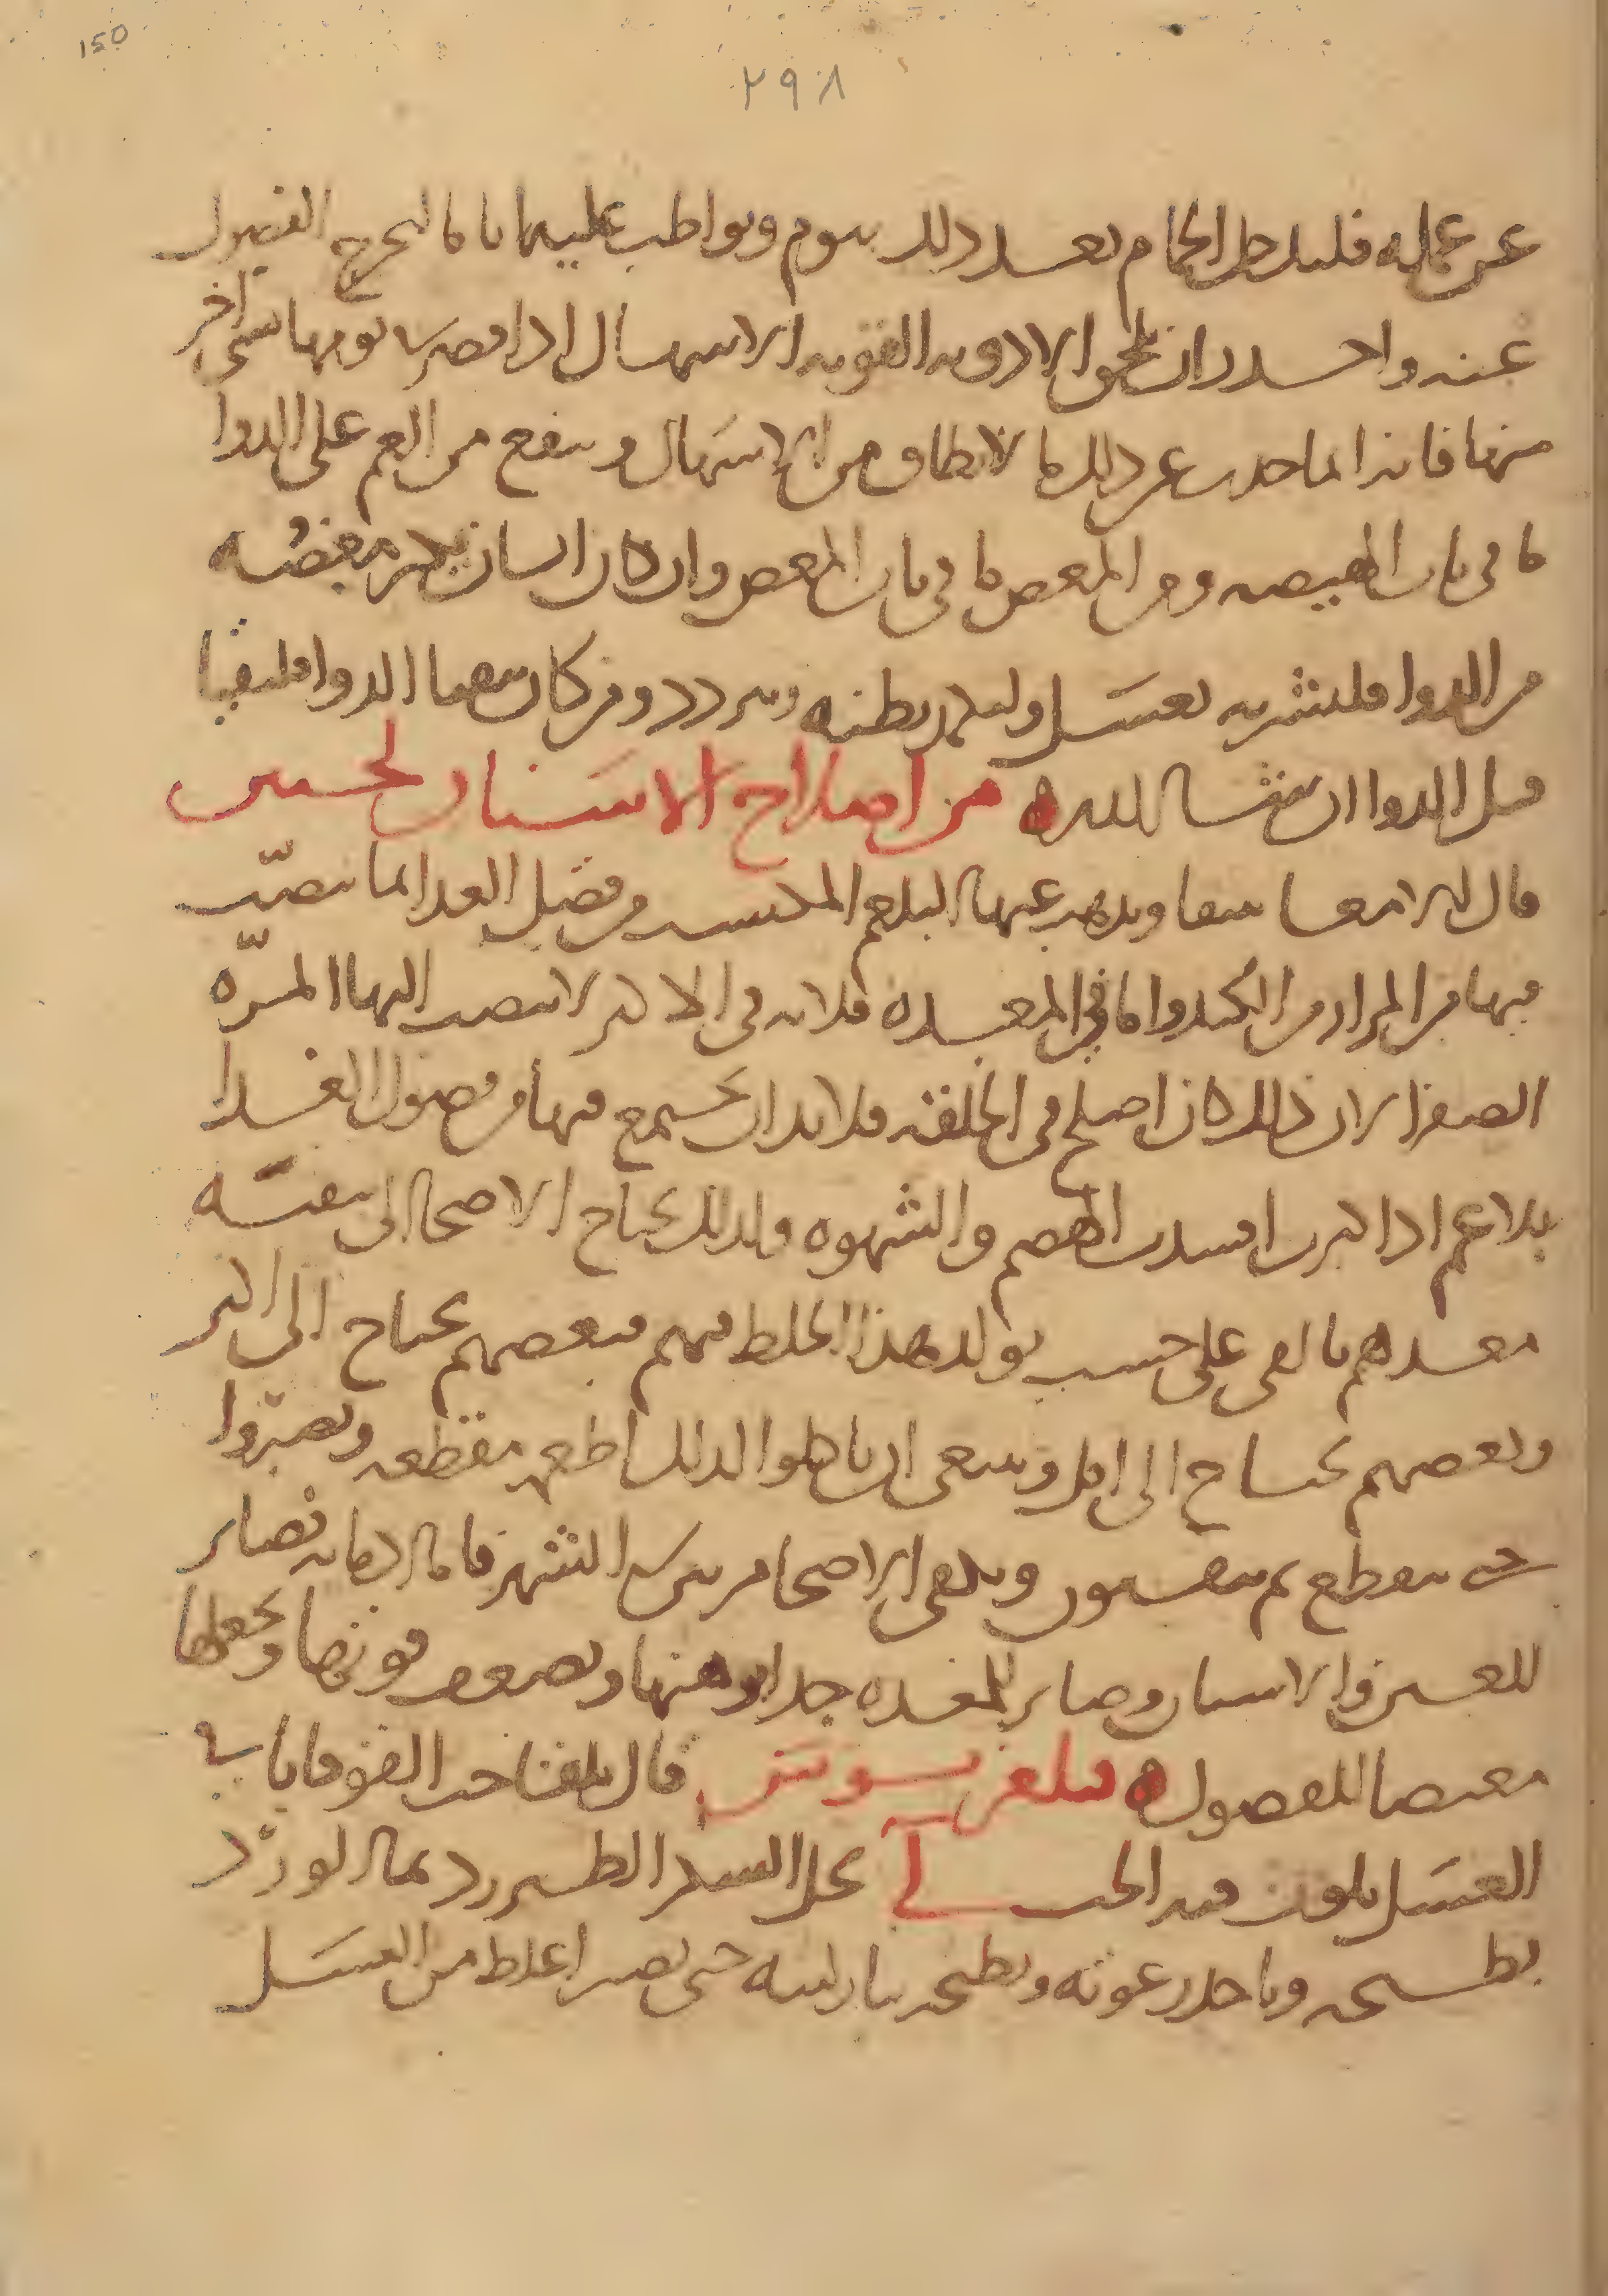 150
٢٩٨
عن عمله فليدخل الحمام بعد ذلك بيوم ويواظب عليها ياما ليخرج الفضول
عنه واحذر ان تلحق الادوية القوية الاسهال اذا قصرت يومها شى اخر
منها فانه ربما حدث عن ذلك ما لا يطاق من الاسهال وينفع من الغم على الدوا
ما فى باب الهيضه ومن المغص ما فى باب المغص وان كان انسان يكثر مغصه
من الدوا فليشربه بعسل وليكمد بطنه ويتردد ومن كان يتقيا الدوا فليتقيا
قبل الدوا ان شا الله من اصلاح الاسنان لحنين
قال ان الامعا ينقا ويذهب عنها البلغم المكتسب من فضل الغذا لما ينصب
فيها من المرار من الكبد واما فى المعده فلانه فى الاكثر لا ينصب اليها المره
الصفرا لان ذلك كان اصلح فى الخلقه فلا بد ان يجتمع فيها من فضول الغذا
بلاغم اذا كثرت افسدت الهضم والشهوه ولذلك يحتاج الاصحا الى تنقيه
معدهم بالقى على حسب تولد هذا الخلط فيهم فبعضهم يحتاج الى اكثر
وبعضهم يحتاج الى اقل وينبغى ان ياكلوا لذلك اطعمه مقطعه ويصبروا
حتى يتقطع ثم يتقيون ويكفى الاصحا مرتين فى الشهر فاما ادمانه فضار
للعينين والاسنان وضار للمعده جدا يوهنها ويضعف قوتها ويجعلها
مغيضا للفضول قال
العسل يكون فيه الحب لى يحل السكر الطبرزد بما الورد
بطبخه وياخذ رغوته ويطبخه بنار لينه حتى يصير اغلظ من العسل